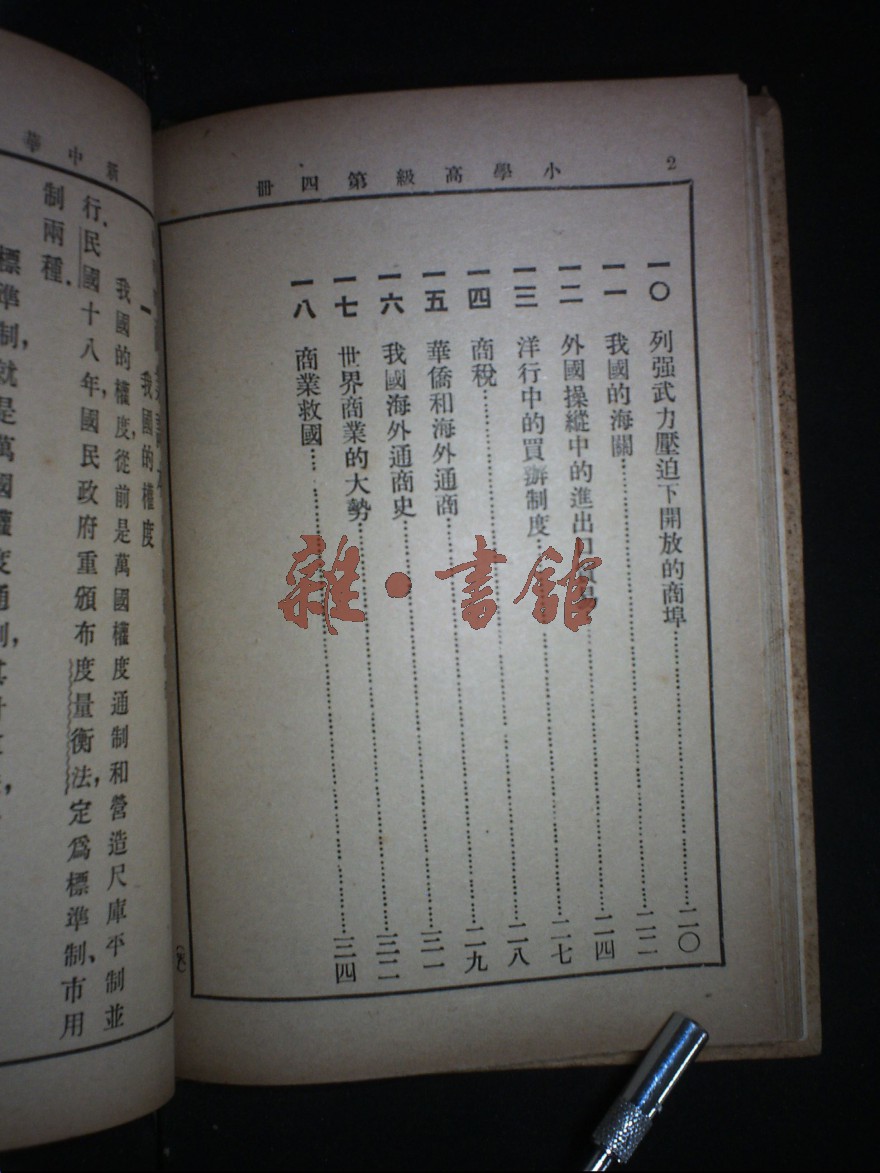 2
小學高級第四冊
一〇 列强武力壓迫下開放的商埠……二〇
一一 我國的海關……二二
一二 外國操縱中的進出口貿易……二四
一三 洋行中的買辦制度……二七
一四 商稅……二八
一五 華僑和海外通商……二九
一六 我國海外通商史……三一
一七 世界商業的大勢……三二
一八 商業救國……三四
雜·書館
新中華
一 我國的權度
我國的權度,從前是萬國權度通制和營造尺庫平制並
行.民國十八年,國民政府重頒布度量衡法,定爲標準制、市用
制兩種.
標準制,就是萬國權度通制,